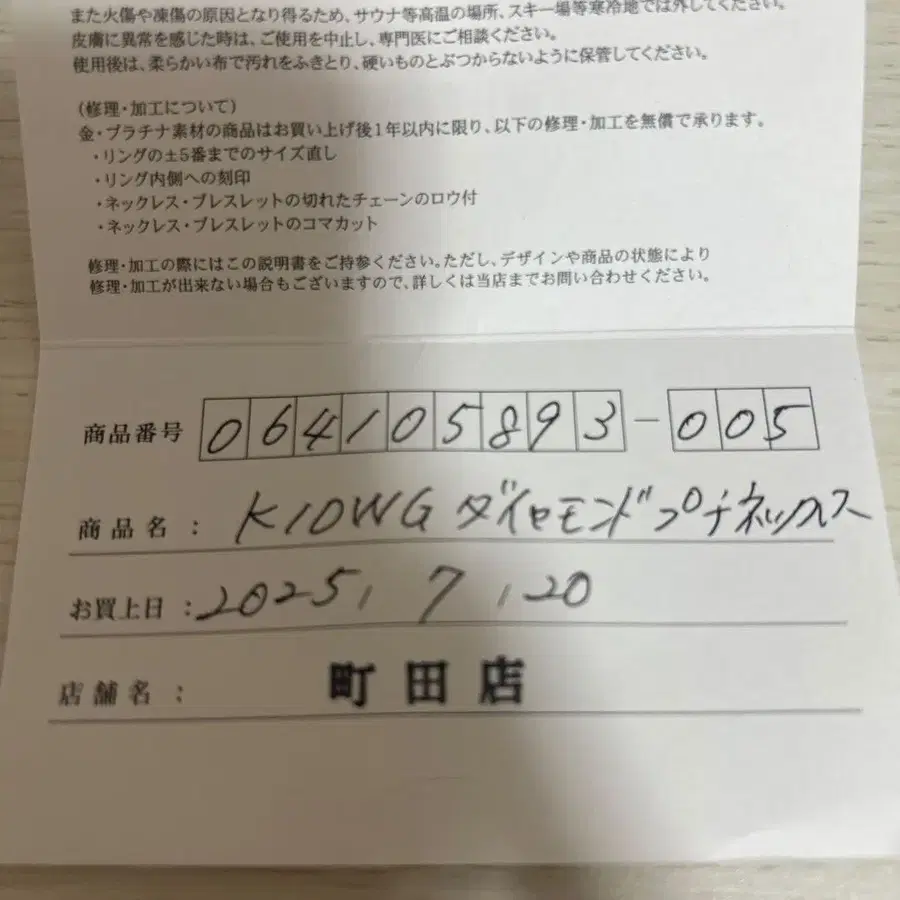 また火傷や凍傷の原因となり得るため、サウナ等高温の場所、スキー場等寒冷地では外してください。
皮膚に異常を感じた時は、ご使用を中止し、専門医にご相談ください。
使用後は、柔らかい布で汚れをふきとり、硬いものとぶつからないように保管してください。
(修理・加工について)
金・プラチナ素材の商品はお買い上げ後1年以内に限り、以下の修理・加工を無償で承ります。
・リングの±5番までのサイズ直し
・リング内側への刻印
・ネックレス・ブレスレットの切れたチェーンのロウ付
・ネックレス・ブレスレットのコマカット
修理・加工の際にはこの説明書をご持参ください。ただし、デザインや商品の状態により
修理・加工が出来ない場合もございますので、詳しくは当店までお問い合わせください。
商品番号 064105893-005
商品名: K10WG ダイヤモンドプチネックレス
お買上日: 2025, 7, 20
店舗名: 町田店